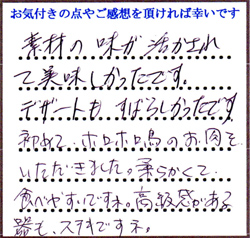 お気付きの点やご感想を頂ければ幸いです
素材の味が活かされ
て美味しかったです。
デザートも すばらしかったです
初めて、ホロホロ鳥のお肉を
いただきました。柔らかくて
食べやすいですネ。高級感がある
器も、ステキですネ。